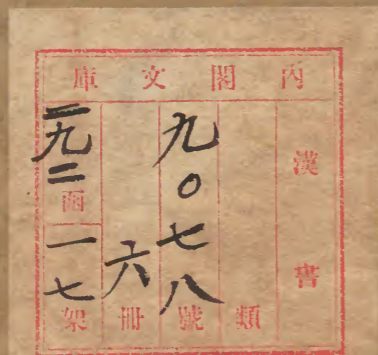 內閣文庫
漢書
類
九〇七八號
六冊
二九二函
一七架